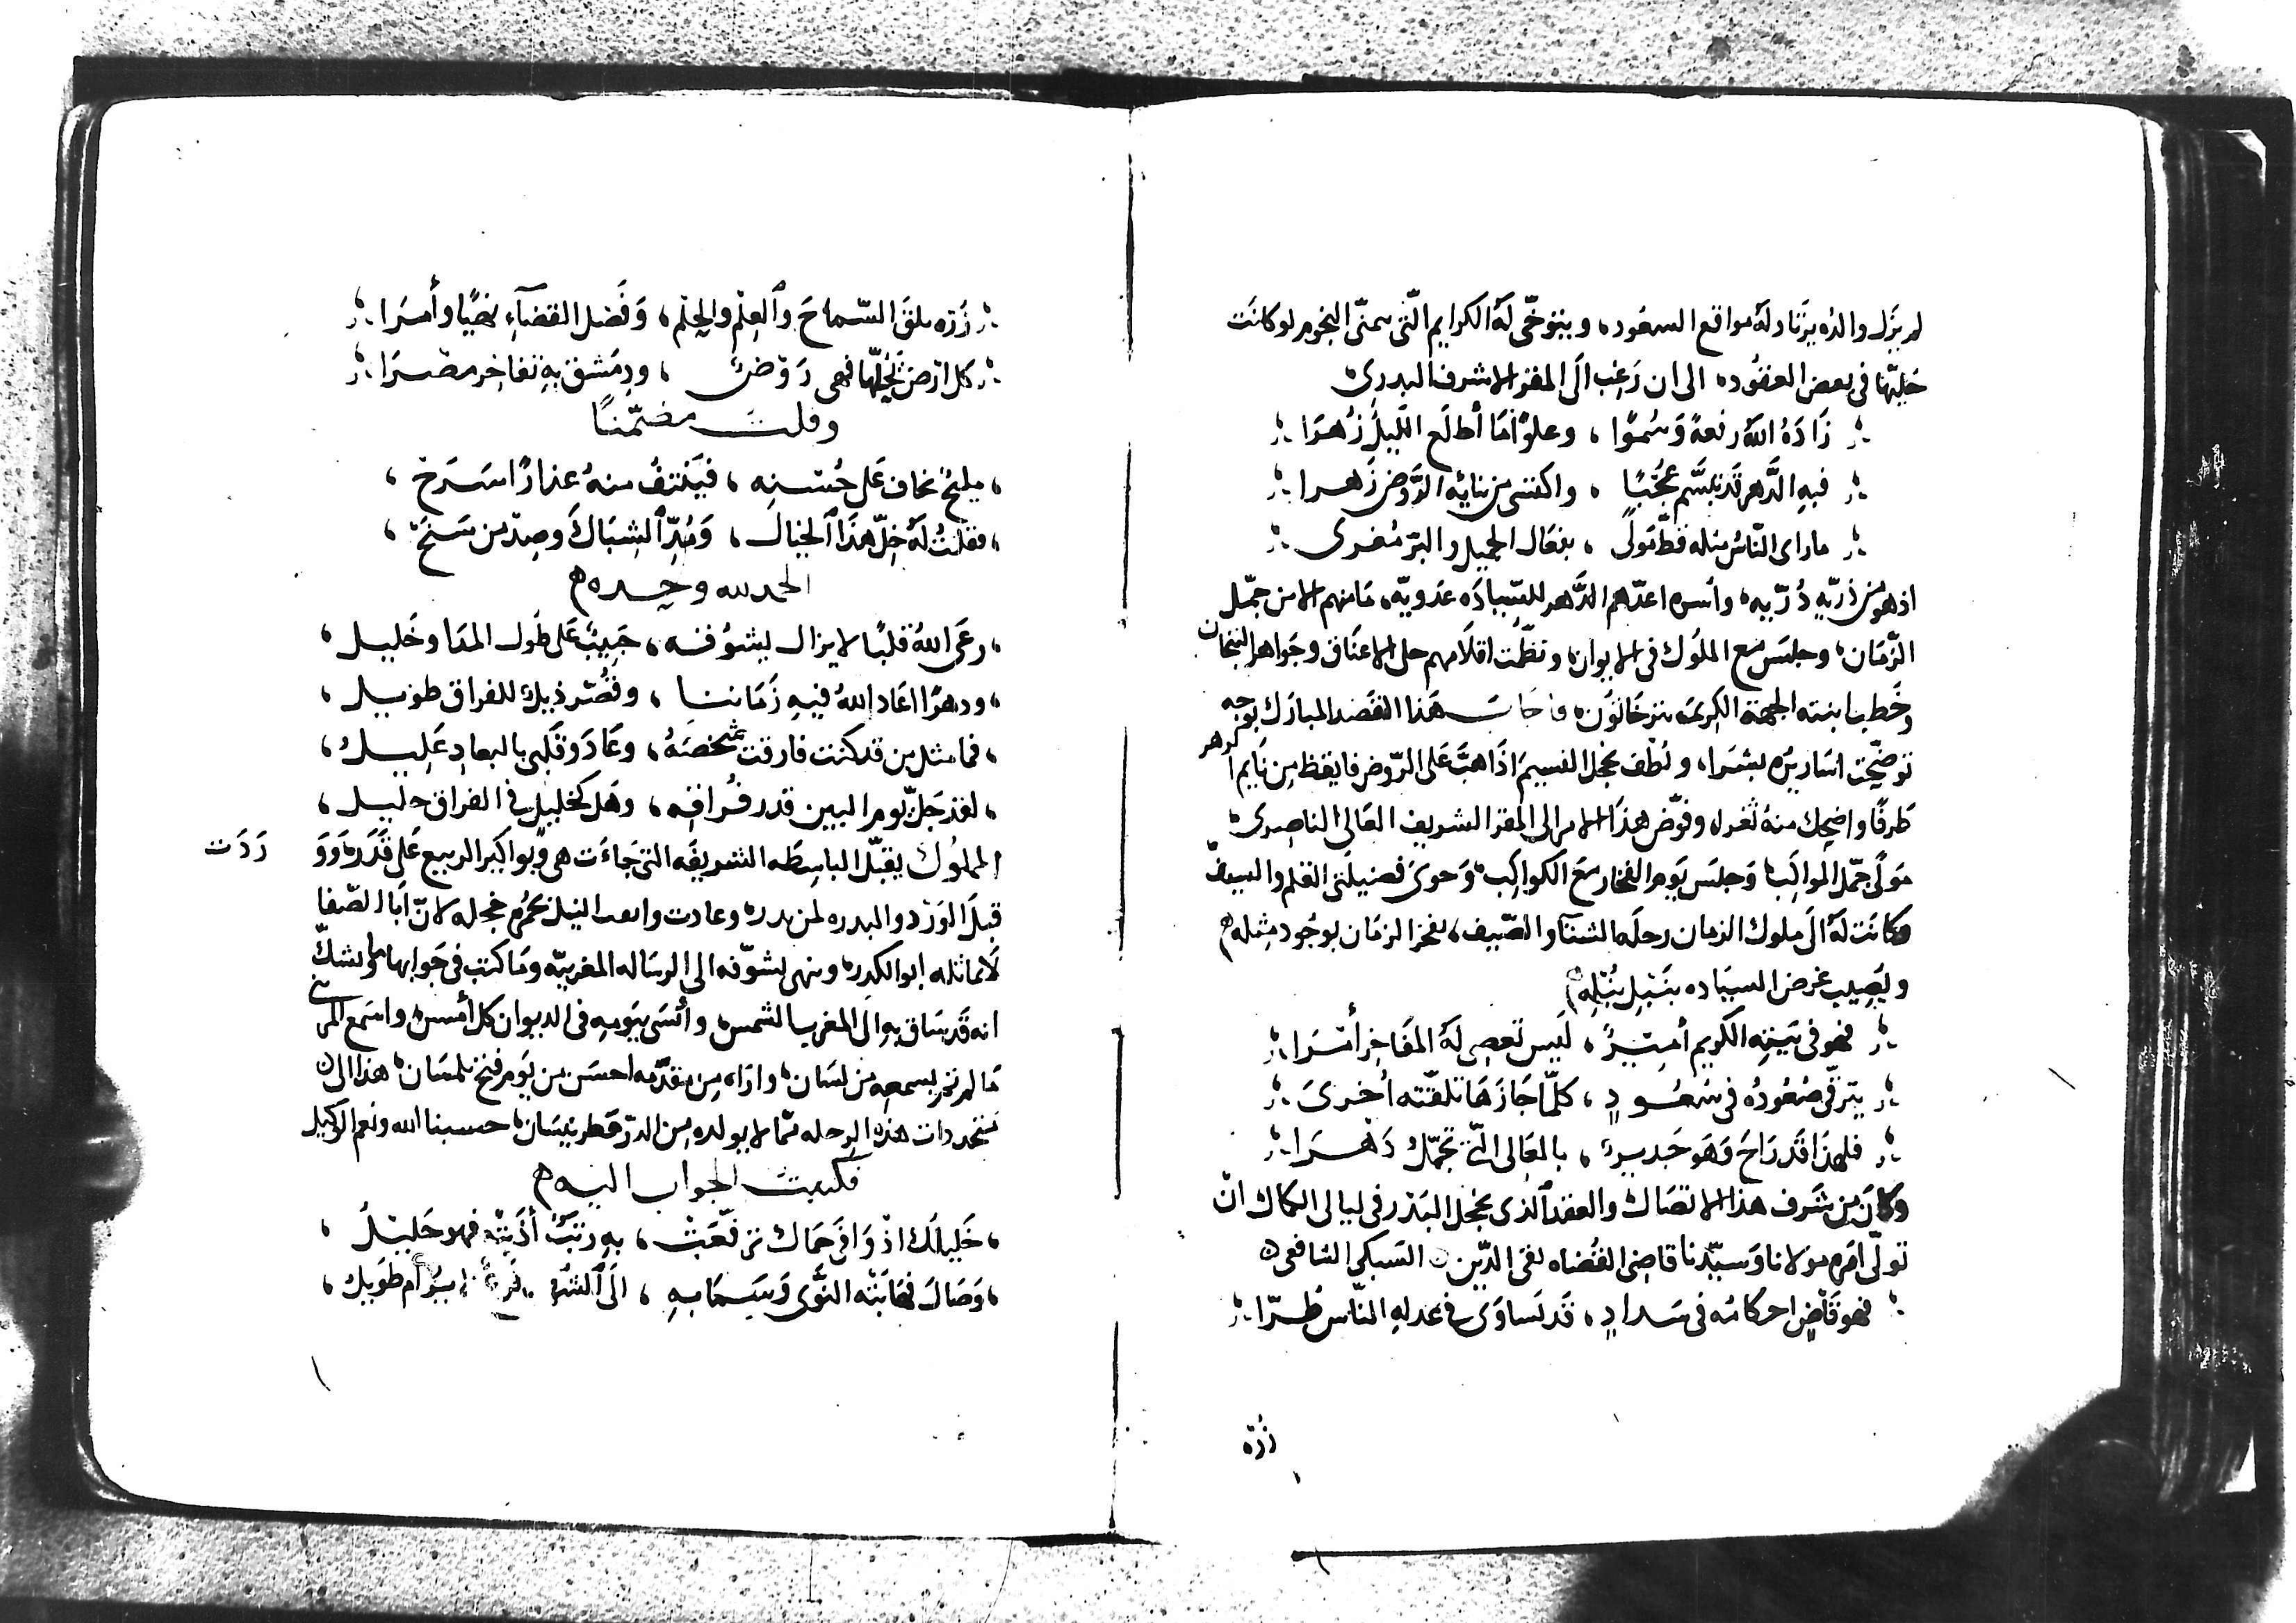 لم يزل والده يرتاد له مواقع السعود، ويتوخى له الكرايم التي تتمنى النجوم لو كانت
حليتها في بعض العقود، الى ان رغب الى المقر الاشرف البدري
زاده الله رفعة وسموا، وعلوا ما أطلع الليل زهرا
فيه الدهر قد تبسم عجبا، واكتسى من ثنايه الروض زهرا
ما راى الناس مثله قط مولى، بفعال الجميل والبر مغرى
اذ هو من ذرية دُرّيه، وأسره اعدّهم الدهر للسياده عدويه، ما منهم الا من جمّل
الزمان، وجلس مع الملوك في الايوان، ونظمت اقلامهم حلى الاعناق وجواهر التيجان
وخطب ابنته الجهة الكريمه تترخاتون، فاجاب هذا القصد المبارك بوجه
توضحت اساريره بشرا، ولطف يخجل النسيم اذا هب على الروض فايقظ من نايم الزهر
طرفا واضحك منه ثغرا، وفوّض هذا الامر الى المقر الشريف العالي الناصري
مولى جمّل المواكب، وجلس يوم الفخار مع الكواكب، وحوى فضيلتي القلم والسيف
وكانت له الى ملوك الزمان رحلة الشتا والصيف، يفخر الزمان بوجود مثله
ويصيب غرض السياده بنبل نبله
فهو في بيته الكريم أمير، ليس تعصى له المفاخر أمرا
يترقى صعوده في سعود، كلما جازها تلقته اخرى
فلهذا قد راح وهو جدير، بالمعالي التي تجمّل دهرا
وكان من شرف هذا الاتصال والعقد الذي يخجل البدر في ليالي الكمال ان
تولى امره مولانا وسيدنا قاضي القضاه تقي الدين السبكي الشافعي
فهو قاض احكامه في سداد، قد تساوى في عدله الناس طرا
زُرْه
زره تلق السماح والعلم والحلم، وفضل القضاء نهيا وأمرا
كل ارض يحلها فهي روض، ودمشق به تفاخر مصرا
وقلت مضمنا
مليح يخاف على حسنه، فينتف منه عذارا سرح
فقلت له خل هذا الخيال، ومد الشباك وصد من سنح
الحمد لله وحده
رعى الله قلبا لا يزال يشوقه، حبيب على طول المدا وخليل
ودهرا اعاد الله فيه زماننا، وقصر ذيل للفراق طويل
فما مثل من قد كنت فارقت شخصه، وعاد وقلبي بالبعاد عليل
لقد جل يوم البين قدر فراقه، وهل كخليل في الفراق جليل
المملوك يقبل الباسطه الشريفه التي جاءت هي وبواكير الربيع على قدر، وو ردت
قبل الورد والبدره لمن بدره وعادت النيل بحمرة خجله لان أبا الصفا
لا يماثله ابو الكدر، وينهى تشوقه الى الرساله المغربيه وما كتب في جوابها ولا شك
انه قد ساق به الى المغرب الشمس، وأنسى بيومه في الديوان كل أمس، واسمع المريني
ما لم تجر بسمعه من لسان، واراه من مقدمه احسن من يوم فتح تلمسان، هذا الى
متجددات هذه الرحله مما لا يولده من الدر قطر نيسان، حسبنا الله ونعم الوكيل
فكتبت الجواب اليه
خليلك اذ وافى حماك ترفعت، به رتب أدنته فهو خليل
وصال فهابته النوى وسما به، الى